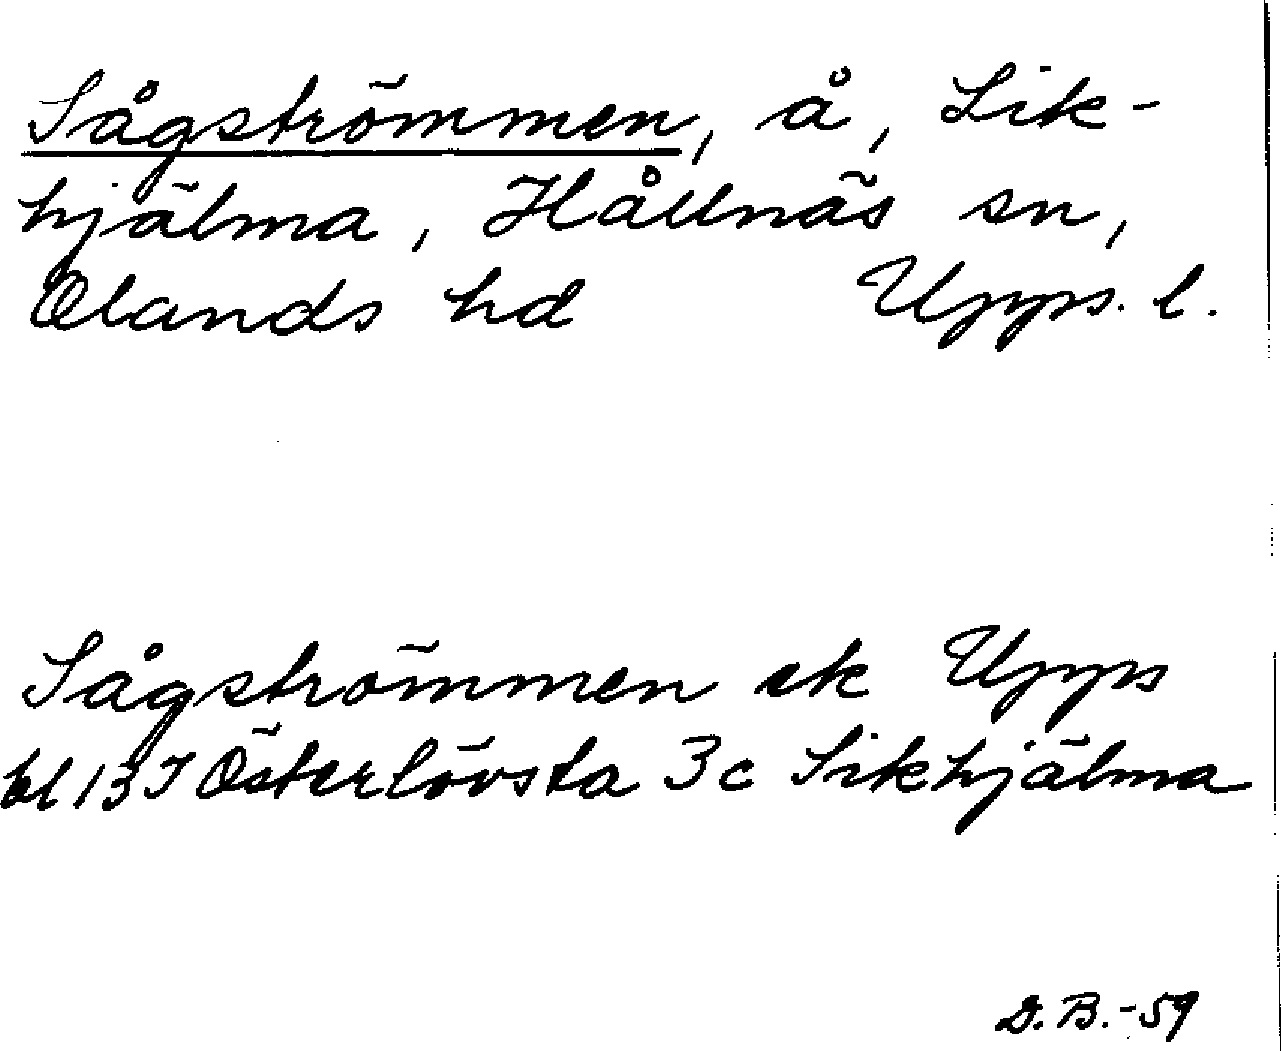 Sågströmmen, å, Sik-
hjälma, Hållnäs sn,
Olands hd Upps. l.
Sågströmmen ek Upps
bl 13 I Österlövsta 3c Sikhjälma
D. B. -59